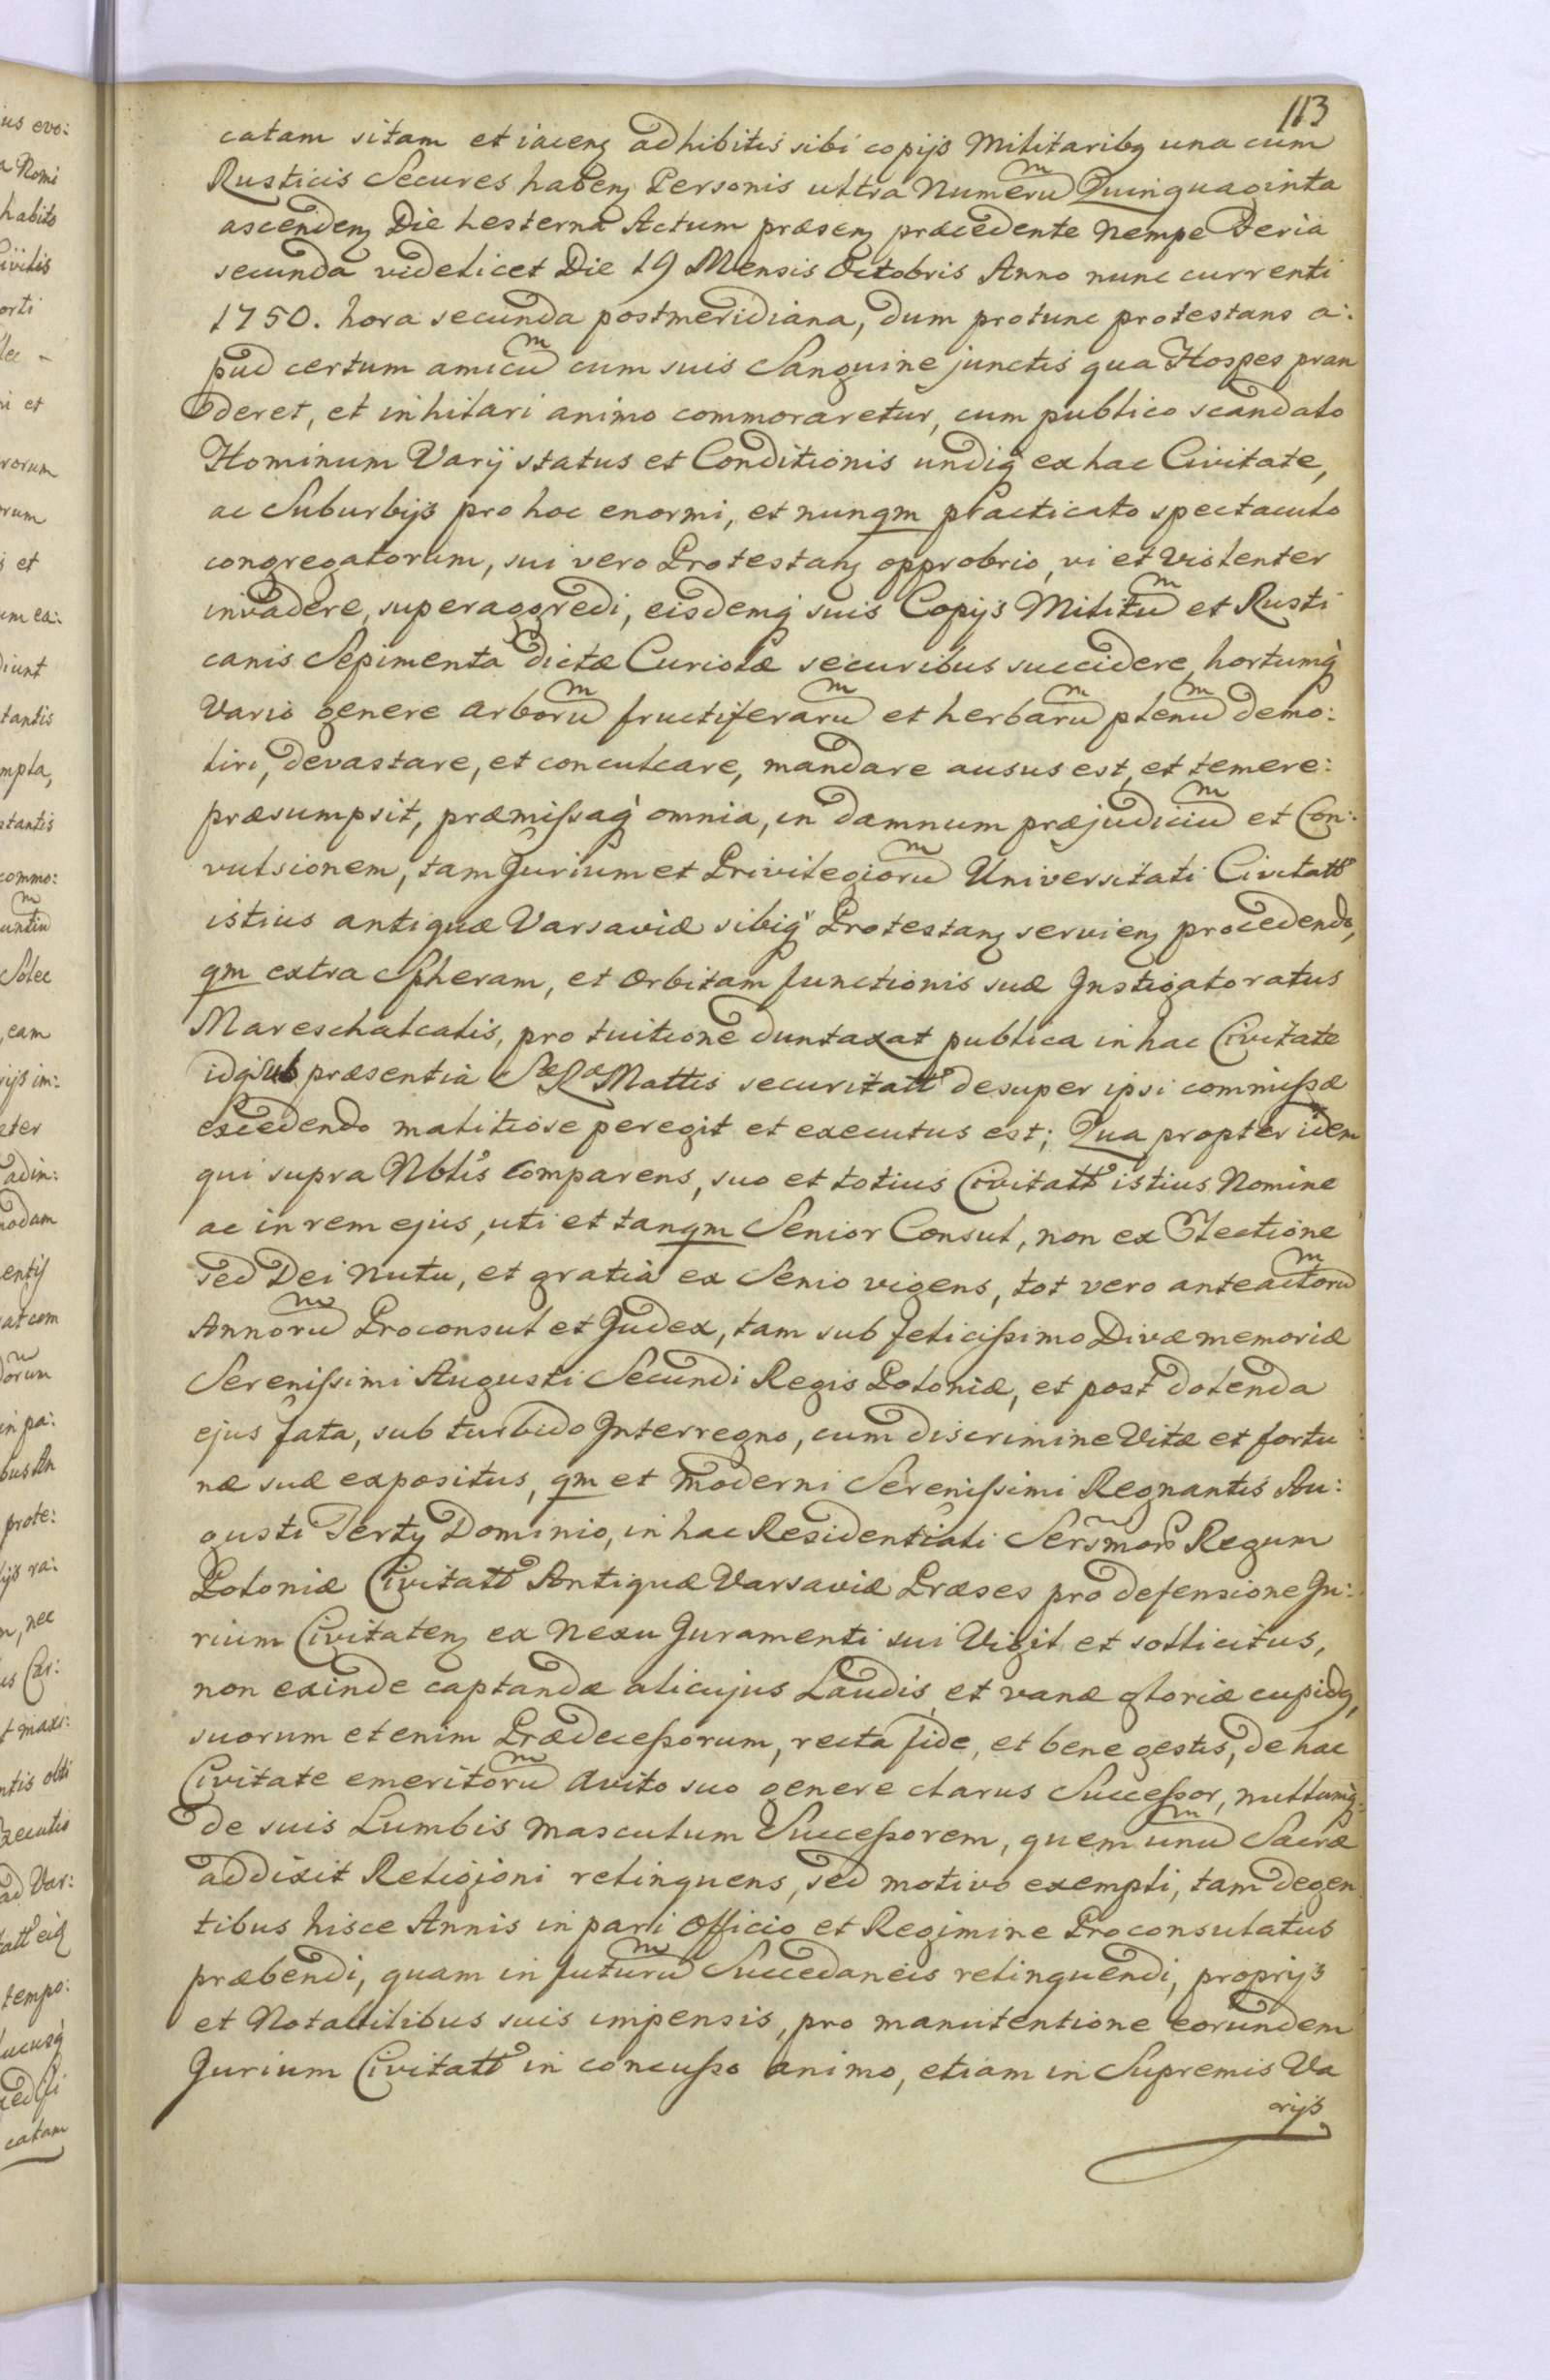 113
catam sitam et iacenꝫ adhibitis sibi copijs Militaribꝫ una cum
Rusticis Secures habenꝫ Personis ultra Numerum Quinquaginta
ascendenꝫ Die hesterna Actum præsenꝫ præcedente nempe Feria
secunda videlicet Die 19 Mensis Octobris Anno nunc currenti
1750. hora secunda postmeridiana, dum protunc protestans a:
pud certum amicum cum suis Sanguine junctis qua Hospes pran
deret, et in hilari animo commoraretur, cum publico scandalo
Hominum Varij status et Conditionis undiqꝫ ex hac Civitate,
ac Suburbijs pro hoc enormi, et nunqm practicato spectaculo
congregatorum, sui vero Protestanꝫ opprobrio, vi et violenter
invadere, superaggredi, eisdemqꝫ suis Copijs Militum et Rusti
canis Sepimenta dictæ Curiolæ securibus succidere, hortumqꝫ
Vario genere arborum fructiferarum et herbarum plenum demo:
liri, devastare, et conculcare, mandare ausus est, et temere:
præsumpsit, præmissaqꝫ omnia, in damnum præjudicium et Con:
vulsionem, tam Jurium et Privilegiorum Universitati Civitatis
istius antiquæ Varsaviæ sibiqꝫ Protestanꝫ servienꝫ procedendo,
qm extra Spheram, et orbitam functionis suæ Instigatoratus
Mareschalcalis, pro tuitione duntaxat publica in hac Civitate
idqꝫ sub præsentia Sæ Ræ Mattis securitatis desuper ipsi commissæ
excedendo malitiose peregit et executus est; Qua propter idem
qui supra Nblis Comparens, suo et totius Civitatis istius Nomine
ac in rem ejus, uti et tanqm Senior Consul, non ex Electione
sed Dei Nutu, et gratia ex Senio vigens, tot vero anteactorum
Annorum Proconsul et Judex, tam sub felicissimo Divæ memoriæ
Serenissimi Augusti Secundi Regis Poloniæ, et post dolenda
ejus fata, sub turbido Interregno, cum discrimine Vitæ et fortu
næ suæ expositus, qm et moderni Serenissimi Regnantis Au:
gusti Tertij Dominio, in hac Residentiali Sersmorum Regum
Poloniæ Civitatis Antiquæ Varsaviæ Præses pro defensione Ju:
rium Civitatenꝫ ex Nexu Juramenti sui Vigil et sollicitus,
non exinde captandæ alicujus Laudis, et vanæ gloriæ cupidꝫ,
suorum etenim Prædecessorum, recta fide, et bene gestis, de hac
Civitate emeritorum Avito suo genere clarus Successor, nullumqꝫ
de suis Lumbis masculum Successorem, quem unum Sacræ
addixit Religioni relinquens, sed motivo exempli, tam degen
tibus hisce Annis in pari Officio et Regimine Proconsulatus
præbendi, quam in futurum Succedaneis relinquendi, proprijs
et Notabilibus suis impensis, pro manutentione eorundem
Jurium Civitatis in concusso animo, etiam in Supremis Va
rijs